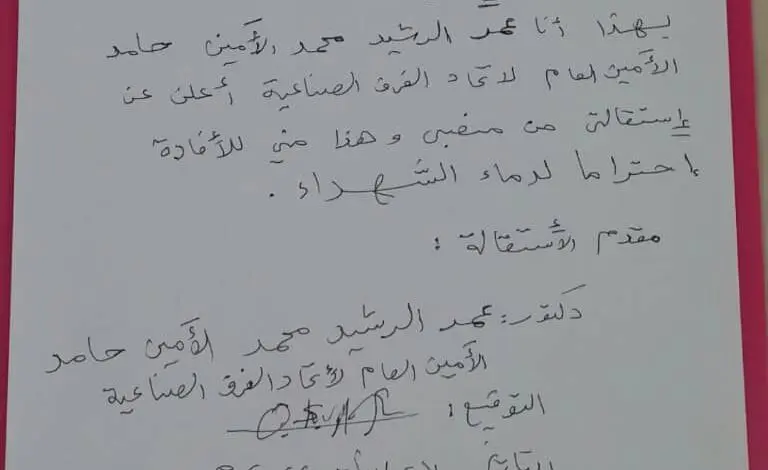 بهذا أنا عمر الرشيد محمد الأمين حامد
الأمين العام لاتحاد الغرف الصناعية أعلن عن
إستقالتي من منصبي و هذا مني للأفادة
إحتراما لدماء الشهداء .
مقدم الأستقالة :
دكتور : عمر الرشيد محمد الأمين حامد
الأمين العام لأتحاد الغرف الصناعية
التوقيع :